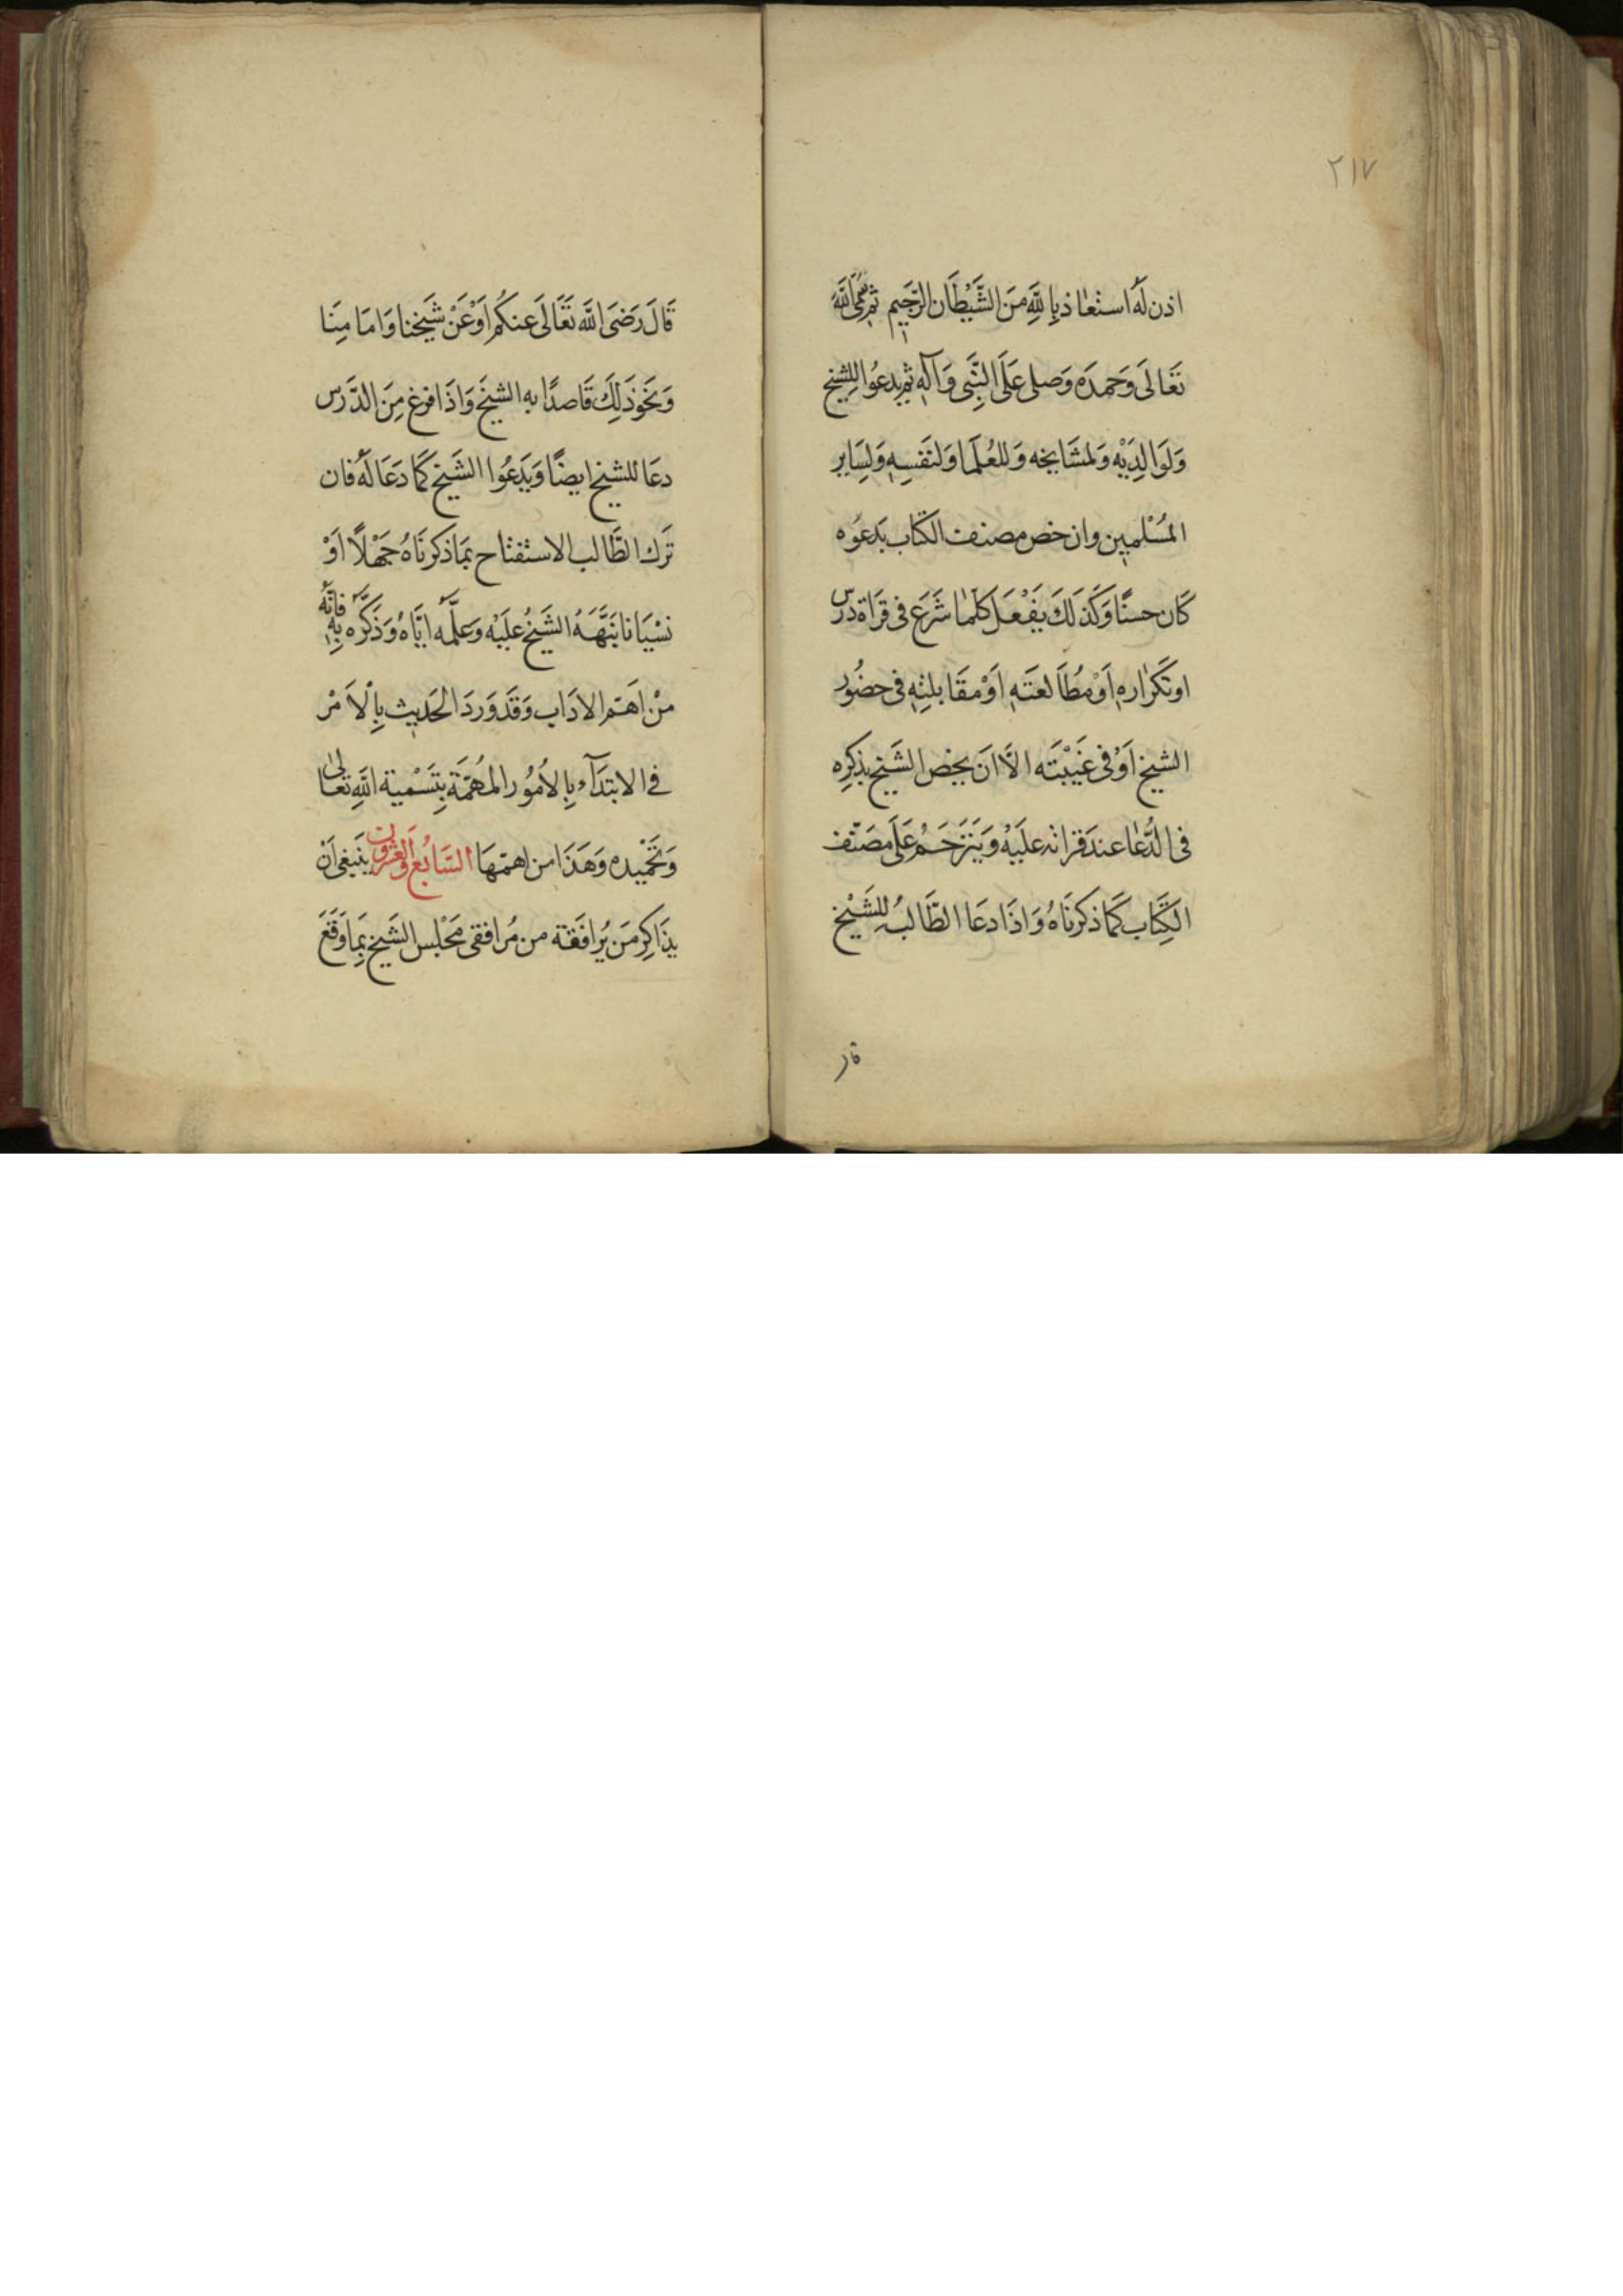 ٢١٧
اذن لَهُ استعاذ بِاللهِ مِنَ الشَّيْطَانِ الرَّجِيمِ ثم سمَّى اللهَ
تَعَالَى وَحَمِدَه وَصلى عَلَى النَّبِى وَآلِهِ ثم يدعُوا للشيخ
وَلوَالِدَيْه وَلمشَايخه وَللعُلَما وَلنَفسِهِ وَلِسَاير
المُسْلمِين وان خص مصنف الكتاب بدعوه
كَان حسنًا وَكَذلكَ يَفْعَل كلّما شَرَعَ فى قرَاة درس
او تكرارِهِ اَوْ مُطَالعَتِهِ اَوْ مقَابلتِهِ فى حضُور
الشيخ اَوْ فى غَيْبَتَه الَّا اَن يخص الشَيخ بذكرِه
فى الدُّعا عند قراته علَيْه وَيَتَرَحَّمُ عَلَى مصَنّف
الكِتَاب كَمَا ذكرنَاهُ وَاذَا دعَا الطَّالبُ للشَيْخ
قال
قَالَ رَضىَ الله تَعَالَى عنكُم اَوْ عَنْ شَيخنا وَامَامِنَا
وَنَحْوَ ذَلِكَ قَاصدًا به الشيخَ وَاذَا فرغ مِنَ الدَّرس
دعَا للشيخ ايضًا وَيَدعُوا الشَيخ كَمَا دَعَا لَهُ فان
تَرك الطَّالب الاستفتاح بمَا ذكرنَاهُ جَهْلًا اَوْ
نسْيَانا نَبَّهَهُ الشَيخُ علَيْه وَعلَّمه ايَّاهُ وَذَكَّرَه بِهِ فانّهُ
منْ اهَمّ الادَاب وَقَد وَرَدَ الحَديث بِالْاَمْر
فى الابتدَآء بِالاُمُور المُهمَّة بِتَسْمية اللهِ تعَالى
وَتَحْميده وَهَذَا من اهمّهَا السَّابعُ وَالعشرون ينبَغى اَنْ
يذَاكِر مَن يُرافقه من مُرافقى مَجْلس الشَيخ بمَا وَقَعَ